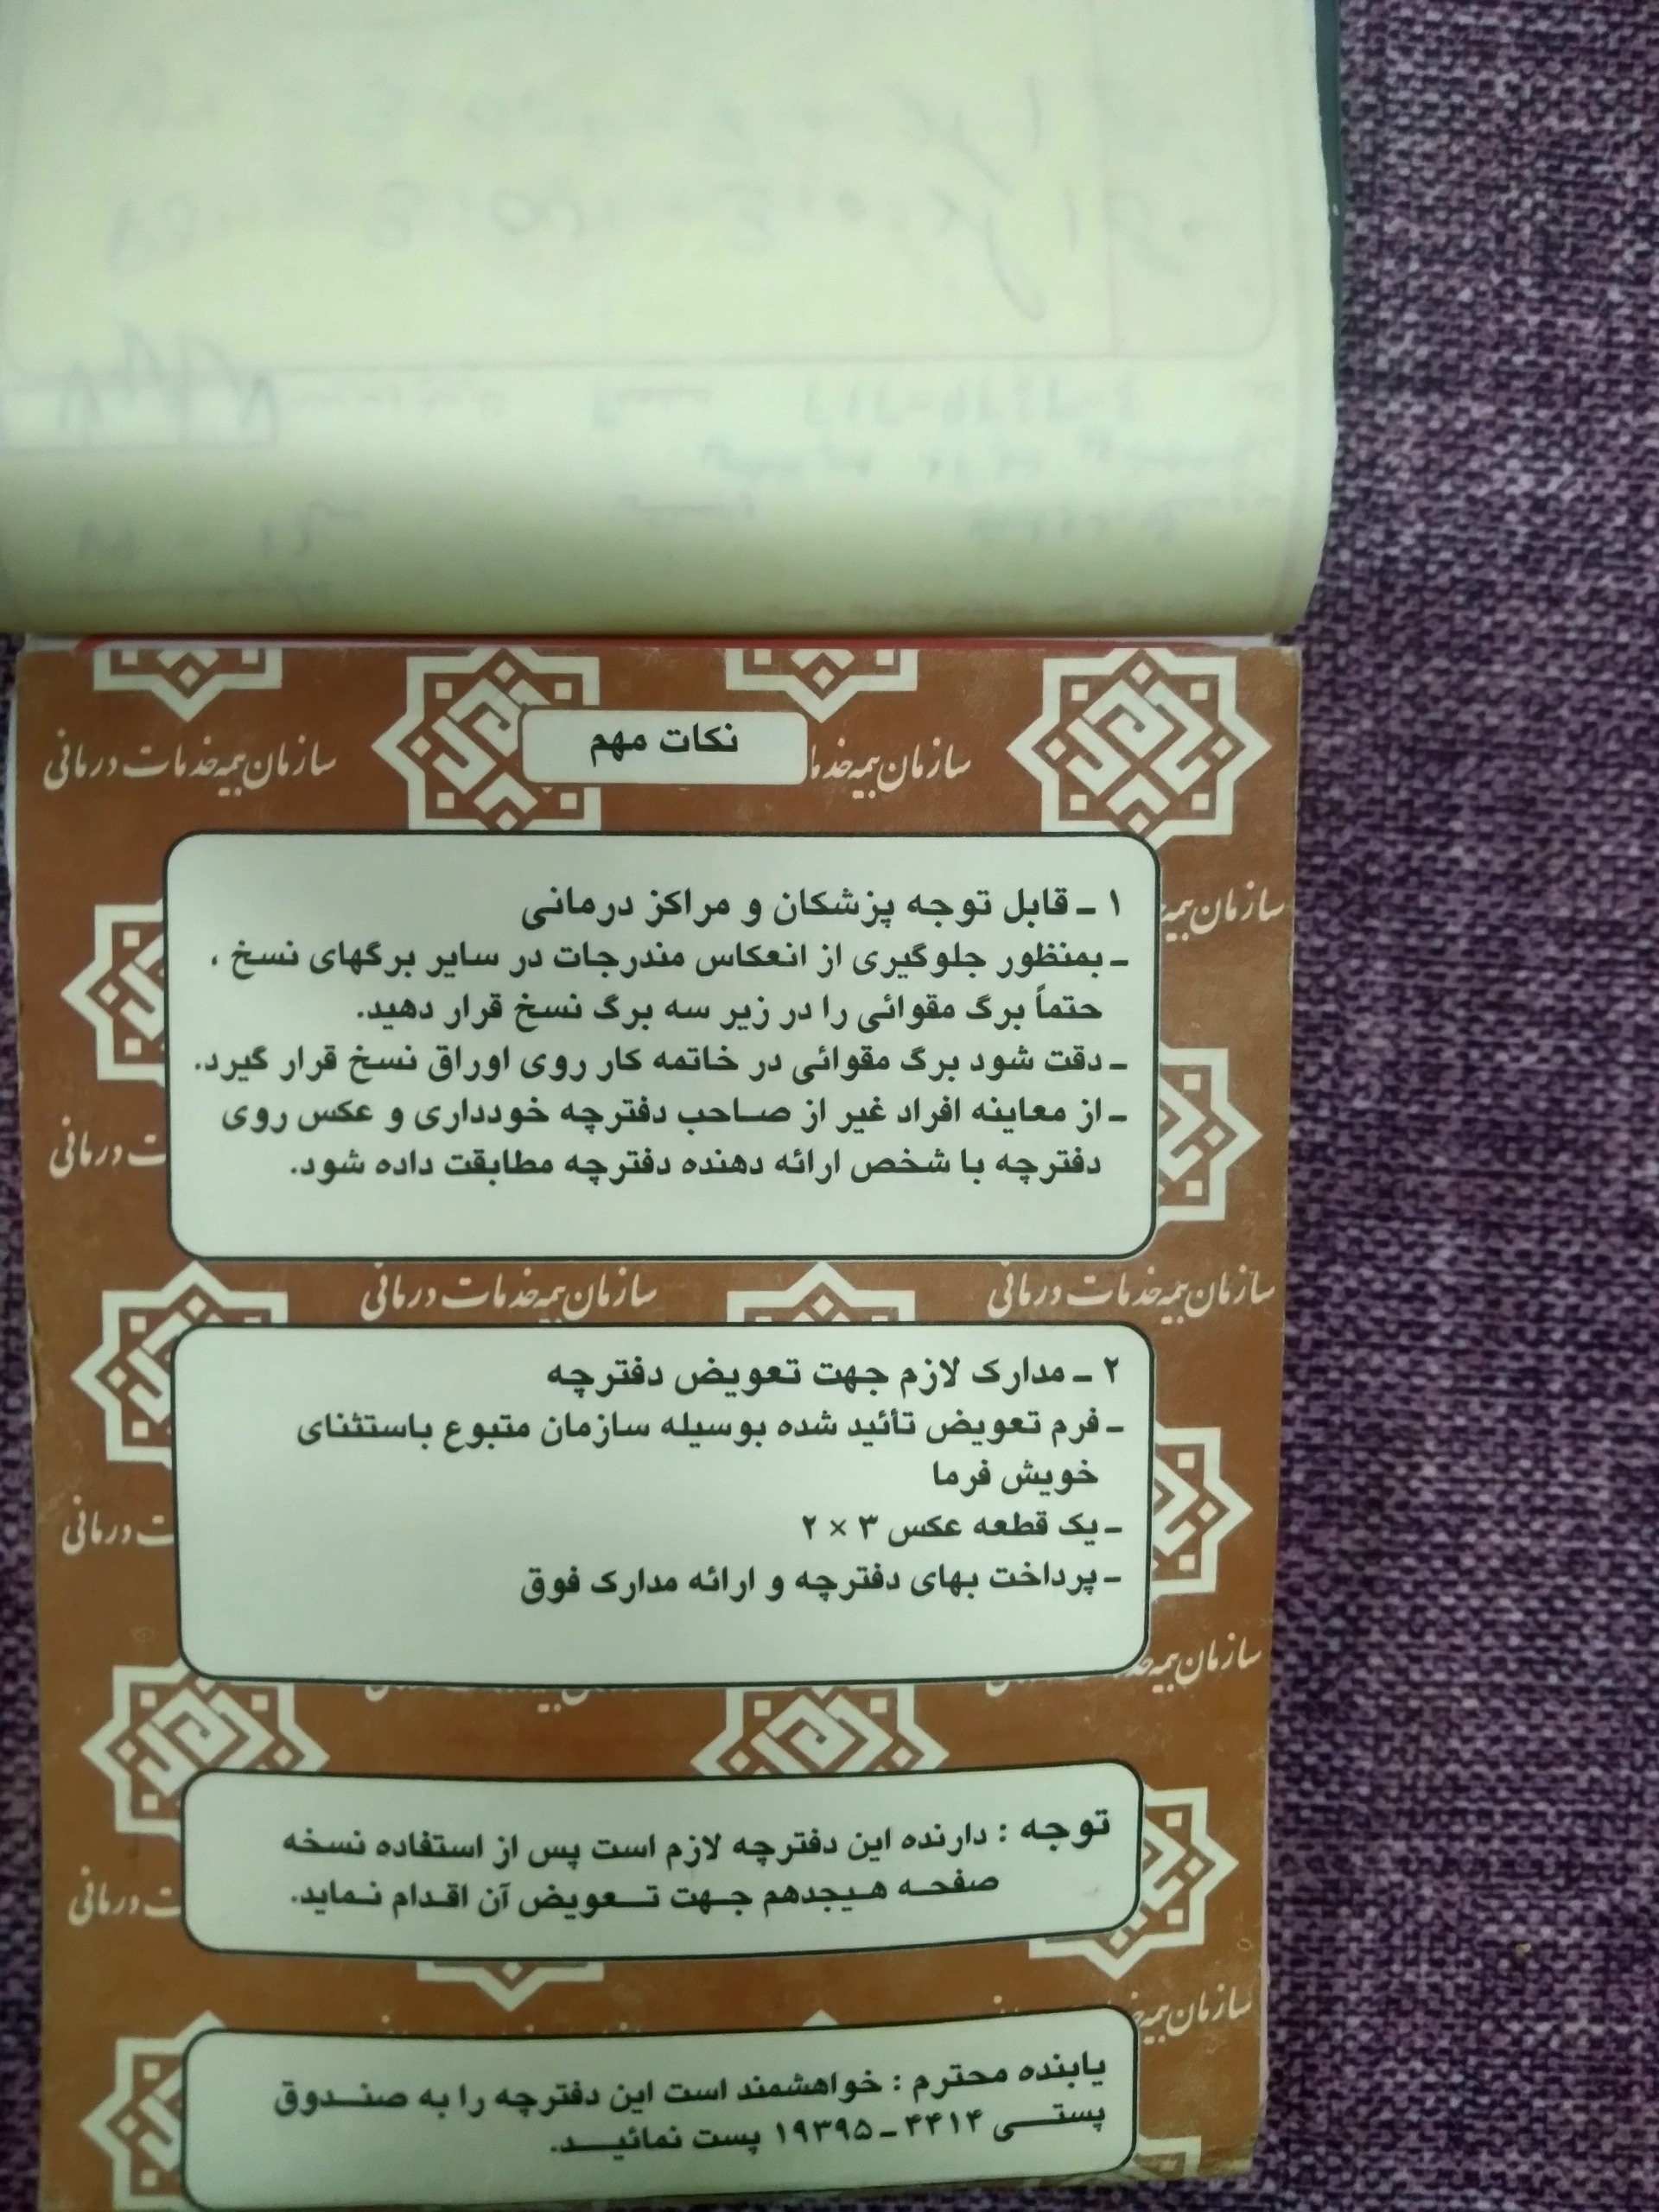 نکات مهم
سازمان بیمه خدمات درمانی
۱ ـ قابل توجه پزشکان و مراکز درمانی
ـ بمنظور جلوگیری از انعکاس مندرجات در سایر برگهای نسخ ،
حتماً برگ مقوائی را در زیر سه برگ نسخ قرار دهید.
ـ دقت شود برگ مقوائی در خاتمه کار روی اوراق نسخ قرار گیرد.
ـ از معاینه افراد غیر از صـاحب دفترچه خودداری و عکس روی
دفترچه با شخص ارائه دهنده دفترچه مطابقت داده شود.
سازمان بیمه خدمات درمانی
سازمان بیمه خدمات درمانی
۲ ـ مدارک لازم جهت تعویض دفترچه
ـ فرم تعویض تأئید شده بوسیله سازمان متبوع باستثنای
خویش فرما
ـ یک قطعه عکس ۳ × ۲
ـ پرداخت بهای دفترچه و ارائه مدارک فوق
توجه : دارنده این دفترچه لازم است پس از استفاده نسخه
صفحـه هـیجدهم جـهت تـــعویض آن اقـدام نـماید.
یابنده محترم : خواهشمند است این دفترچه را به صنـــدوق
پستـــی ۴۴۱۴ ـ ۱۹۳۹۵ پست نمائیـــد.